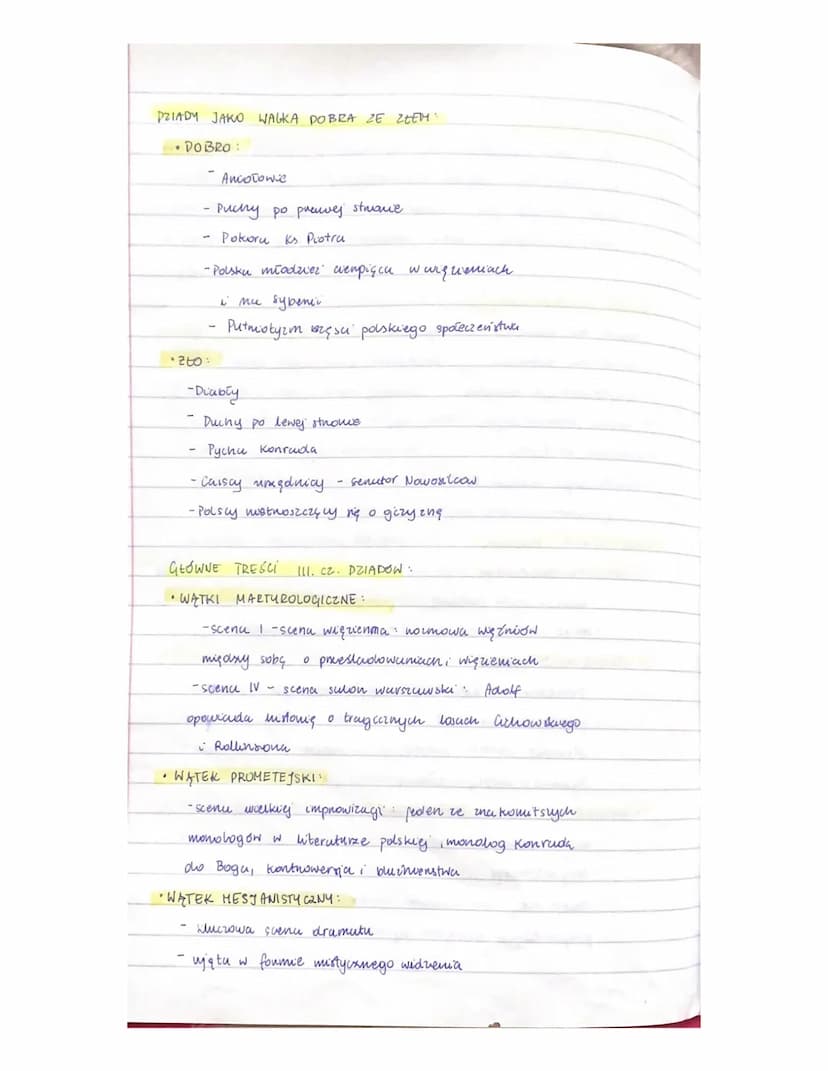 DZIADY JAKO WALKA DOBRA ZE ZŁEM:
• DOBRO:
- Aniołowie
- Duchy po prawej stronie
- Pokora ks Piotra
- Polska młodzież cierpiąca w więzieniach
i na Syberii
- Patriotyzm części polskiego społeczeństwa
• ZŁO:
- Diabły
- Duchy po lewej stronie
- Pycha Konrada
- Carscy urzędnicy - senator Nowosilcow
- Polscy nietroszczący się o ojczyznę
GŁÓWNE TREŚCI III. CZ. DZIADÓW:
• WĄTKI MARTYROLOGICZNE:
- scena I - scena więzienna: rozmowa więźniów
między sobą o prześladowaniach i więzieniach
- scena IV - scena salon warszawski: Adolf
opowiada historię o tragicznych losach Cichowskiego
i Rollinsona
• WĄTEK PROMETEJSKI:
- scena wielkiej improwizacji: jeden ze znakomitszych
monologów w literaturze polskiej, monolog Konrada
do Boga, kontrowersja i bluźnierstwa
• WĄTEK MESJANISTYCZNY:
- kluczowa scena dramatu
- ujęta w formie mistycznego widzenia